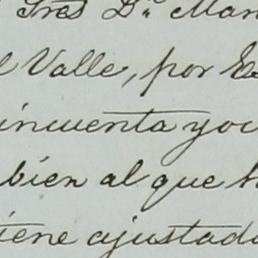 Tres Dn Man
l Valle, por Es
incuenta yoc
bien al que h
iene ajustado